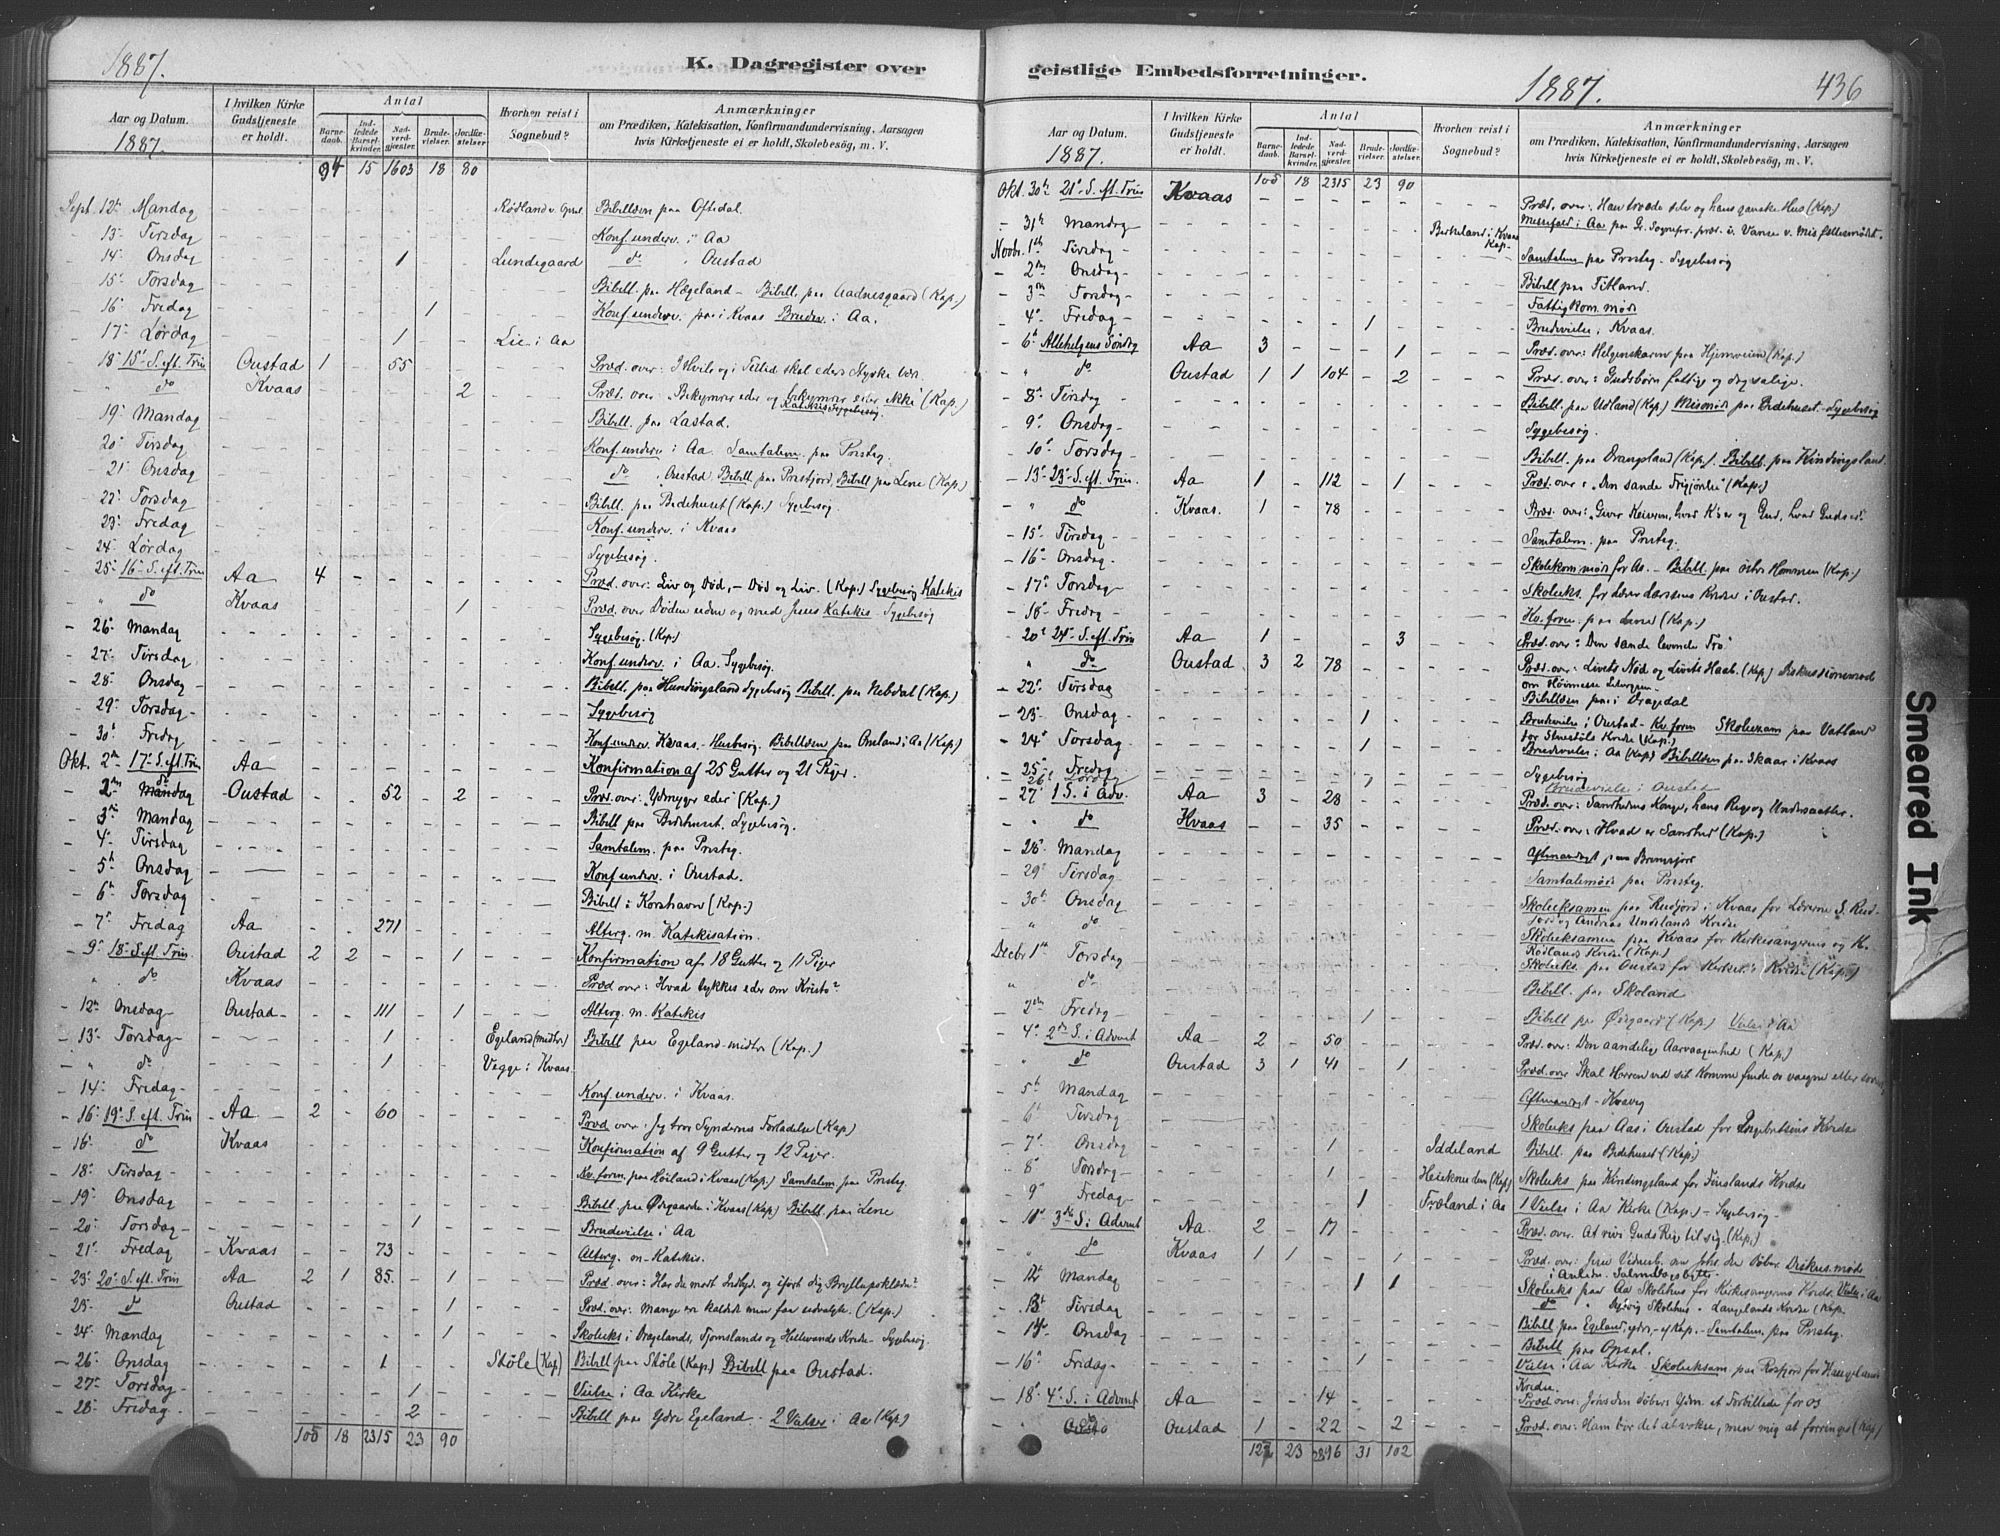 1887.
K. Dagregister over
Aar og Datum.
1887.
I hvilken Kirke Gudstjeneste er holdt.
Antal
Barnedaab.
Indledede Barselkvinder.
Nadverdgjæster.
Brudevielser.
Jordfæstelser
Hvorhen reist i Sognebud?
Anmærkninger
om Prædiken, Katekisation, Konfirmandundervisning, Aarsagen
hvis Kirketjeneste ei er holdt, Skolebesög, m. V.
94 15 1603 18 80
Sept. 12te Mandag - Bibellæsn paa Oftedal
13 Tirsdag Konf. underv. i Aa
14 Onsdag 1 Lundegaard do " Oustad
15 Torsdag Bibell. paa Hægeland - Bibell. paa Aadnesgaard (Kap)
16 Fredag 1 Konf. underv. i Kvaas Brudev. i Aa.
17 Lørdag 1 Lie i Aa
18 15 S. eft. Trin Oustad 1 55 Præd. over: I Hvile og i Tillid skal eders Styrke vær.
" do Kvaas 2 Præd. over "Bekymrer eder og bekymrer eder ikke" (Kap)
19 Mandag Bibell. paa Lastad.
20 Tirsdag Konf. underv. i Aa Samtalem. paa Prsteg.
21 Onsdag do " Oustad Bibell paa Prestfjord Bibell paa Lene (Kap)
22 Torsdag Bibell. paa Bedehuset (Kap.) Sygebesøg.
23 Fredag Konf. underv. i Kvaas
24 Lørdag Sygebesøg.
25 16 S. eft. Trin Aa 4 Præd. over: Liv og Død, - Død og Liv. (Kap) Sygebesøg Katekis
" do Kvaas 1 Præd. over Døden uden og med Jesus Katekis - Sygebesøg
26 Mandag Sygebesøg. (Kap)
27 Tirsdag Konf. underv. i Aa. Sygebesøg.
28 Onsdag Bibell. paa Hundingsland Sygebesøg Bibell. paa Nebdal (Kap)
29 Torsdag Sygebesøg
30 Fredag Konf underv. Kvaas - Husbesøg. Bibellæsn paa Omland i Aa (Kap)
Okt. 2n 17 S. eft. Trin Aa Konfirmation af 25 Gutter og 21 Piger.
2n do Oustad 52 2 Præd. over: "Ydmyger eder" (Kap.)
3 Mandag Bibell paa Bedehuset. Sygebesøg.
4 Tirsdag Samtalem. paa Prsteg.
5 Onsdag Konf. underv. i Oustad.
6 Torsdag Bibell i Korshavn (Kap.)
7 Fredag Aa 271 Alterg. m. Katekisation.
9 18 S. eft. Trin Oustad 2 2 1 Konfirmation af 18 Gutter og 11 Piger
" do Kvaas Præd over: Hvad tykkes eder om Kristo?
12 Onsdag Oustad 111 1 Alterg. m. Katekis
13 Torsdag 1 Egeland (midtre) Bibell paa Egeland midtre (Kap.)
" do 1 Vegge i Kvaas
14 Fredag Konf. underv. i Kvaas.
16 19 S. eft. Trin Aa 2 60 Præd over: Jeg tror Syndernes Forladelse (Kap)
16 do Kvaas Konfirmation af 9 Gutter og 12 Piger.
18 Tirsdag Kv. foren. paa Høiland i Kvaas (Kap) Samtalem paa Prsteg.
19 Onsdag Bibell paa Ørgaarden i Kvaas (Kap) Bibell. paa Lene
20 Torsdag 1 Brudevielse i Aa
21 Fredag Kvaas 73 Alterg. m. Katekis.
23 20 S. eft. Trin Aa 2 1 85 1 Præd. over: Har du modt Indbyd. og iført dig Bryllupsklæde?
23 do Oustad 1 Præd. over: Mange er kaldede men faa udvalgte. (Kap)
24 Mandag 1 Skoleeks i Dragelands, Tjomslands og Hellevands Kredse - Sygebesøg
26 Onsdag 1 Støle (Kap) Bibell paa Støle (Kap) Bibell paa Oustad.
27 Torsdag 1 Vielse i Aa Kirke
28 Fredag 2 Bibell paa Ydre Egeland - 2 Vielser i Aa (Kap)
100 18 2315 23 90
geistlige Embedsforretninger.
1887.
436
Aar og Datum.
1887.
I hvilken Kirke Gudstjeneste er holdt.
Antal
Barnedaab.
Indledede Barselkvinder.
Nadverdgjæster.
Brudevielser.
Jordfæstelser.
Hvorhen reist i Sognebud?
Anmærkninger
om Prædiken, Katekisation, Konfirmandundervisning, Aarsagen
hvis Kirketjeneste ei er holdt, Skolebesög, m. V.
100 18 2315 23 90
Okt. 30te 21 S. eft. Trin Kvaas Præd. over: Han troede selv og hans ganske Hus (Kap)
31te Mandag Birkeland i Kvaas Kap.
Novbr. 1te Tirsdag Samtalem paa Prsteg - Sygebesøg
2n Onsdag Bibell paa Titland.
3 Torsdag Fattigkom. møde
4 Fredag 1 Brudevielse i Kvaas.
6 Allehelgens Søndag Aa 3 1 Præd. over: Helgenskaren paa Hjemveien (Kap)
" do Oustad 1 1 104 2 Præd. over: Gudsbørn fattige og dog salige.
8 Tirsdag Bibell. paa Udland (Kap) Mismøde paa Bedehuset - Sygebesøg
9 Onsdag Sygebesøg.
10 Torsdag Bibell. paa Drangsland (Kap.) Bibell. paa Kindingsland
13 23 S. eft. Trin. Aa 1 112 1 Præd. over: "Den sande Frigjørelse" (Kap.)
" do Kvaas. 1 78 Præd. over: "Giver Keiseren, hvad K's er og Gud, hvad Guds er"
15 Tirsdag Samtalem. paa Prsteg.
16 Onsdag Skolekom. møde for Aa. - Bibell. paa østre Hommen (Kap)
17 Torsdag Skoleeks. for Lærer Larssens Kredse i Oustad.
18 Fredag Kv. foren. paa Lene (Kap.)
20 24 S. eft. Trin Aa 1 3 Præd. over: Den sande levende Tro
" do Oustad 3 2 78 Præd. over: Livets Nød og Livets Haab. (Kap) Diskussionsmøde om Høimesse Liturgien
22 Tirsdag Bibellæsn paa i Dragedal
23 Onsdag 1 Brudevielse i Oustad - Kv. foren Skoleexam paa Vatland
24 Torsdag 1 Brudevielse i Aa (Kap) Bibellæsn paa Skaar i Kvaas
25 Fredag Sygebesøg
26 Lørdag 1 Brudevielse i Oustad
27 1 S. i Adv. Aa 3 28 Præd. over: Sandhedens Konge, hans Rige og Undersaatter.
" do Kvaas 35 Præd. over: Hvad er Sandhed (Kap.)
28 Mandag
29 Tirsdag Samtalemøde paa Prsteg.
30 Onsdag Skoleeksamen paa Rudjord i Kvaas for Lærerne S. Rudjord og Andreas Undslands Kredse
" do Skoleeksamen paa Kvaas for Kirkesangerens og K. Rødlands Kredse (Kap.)
Decbr 1te Torsdag Skoleeks. paa Oustad for Kirkes. Kredse (Kap.)
" do Bibell. paa Skoland
2den Fredag 1 Bibell paa Ørgaard (Kap) Vielse i Aa
4 2den S. i Advent Aa 2 50 Præd. over: Den aandelige Aarvaagenhed (Kap)
" do Oustad 3 1 41 1 Præd. over Skal Herren ved sit Komme finde os vaagne eller sovende
5 Mandag
6 Tirsdag Skoleeks paa Aas i Oustad for Ingebretsens Kredse
7 Onsdag 1 Iddeland Bibell. paa Bedehuset (Kap.)
8 Torsdag 1 (Kap) Skoleeks paa Kindingsland for Finslands Kredse
9 Fredag 1 Fræland i Aa 1 Vielse i Aa Kirke (Kap) - Sygebesøg -
10 3die S. i Advent Aa. 2 17 Præd. over: At rive Guds Rige til sig. (Kap.)
" do Kvaas 1 1 1 Præd. over: Jesu Vidnesb. om Johs. den Døber Diskus. møde i Anledn. Salmebogsbytte
12 Mandag 1 1 Skoleeks paa Aa Skolehus for Kirkesangerens Kreds. Vielse i Aa
13 Tirsdag do " Skolehus " Langelands Kredse (Kap.
14 Onsdag Bibell paa Egeland, ydre - (Kap. - Samtalem. paa Prsteg.
Bibell paa Opsal.
16 Fridag 1 Vielse i Aa Kirke Skoleeksam. paa Rosfjord for Haugelands Kredse.
18 4 S. i Advent Aa 14 Præd over: Johs den Døbers Ydm. et Forbillede for os
" do Oustad 1 22 2 Præd. over: Ham bør det at vokse, men mig at forringes (Kap)
127 23 2896 31 102
Smeared Ink